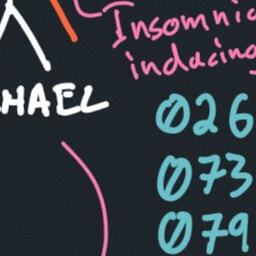 Insomnia
inducing
HAEL
026
073
079